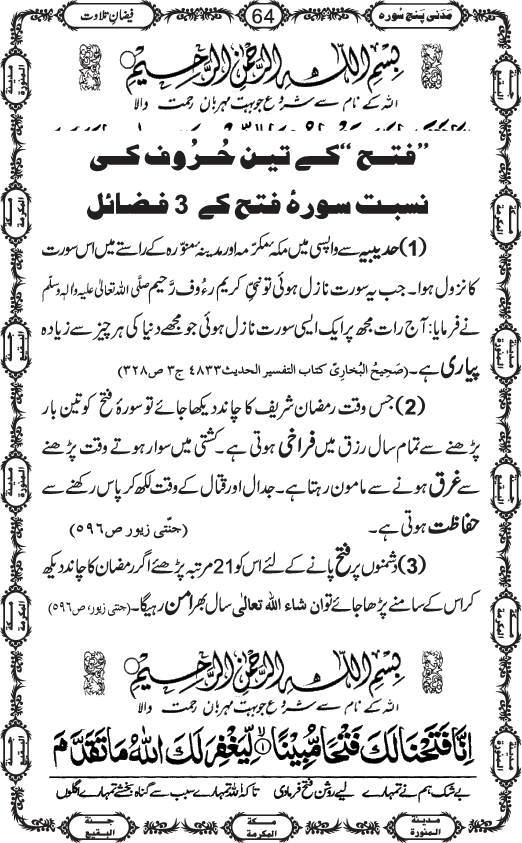 مَدَنی پَنج سُورہ
64
فیضانِ تلاوت
بِسْمِ اللّٰهِ الرَّحْمٰنِ الرَّحِیْمِ
اللہ کے نام سے شروع جو بہت مہربان رحمت والا
”فتح“ کے تین حُرُوف کی
نسبت سورۂ فتح کے 3 فضائل
(1) حدیبیہ سے واپسی میں مکہ مکرّمہ اور مدینہ منوّرہ کے راستے میں اس سورت
کا نزول ہوا۔ جب یہ سورت نازل ہوئی تو نبیِّ کریم رءُوف رَّحیم صلَّی اللہ تعالٰی علیہ واٰلہٖ وسلَّم
نے فرمایا: آج رات مجھ پر ایک ایسی سورت نازل ہوئی جو مجھے دنیا کی ہر چیز سے زیادہ
پیاری ہے۔ (صَحِیحُ البُخارِیّ کتاب التفسیر الحدیث ٤٨٣٣ ج٣ ص٣٢٨)
(2) جس وقت رمضان شریف کا چاند دیکھا جائے تو سورۂ فتح کو تین بار
پڑھنے سے تمام سال رزق میں فراخی ہوتی ہے۔ کشتی میں سوار ہوتے وقت پڑھنے
سے غرق ہونے سے مامون رہتا ہے۔ جدال اور قتال کے وقت لکھ کر پاس رکھنے سے
حفاظت ہوتی ہے۔ (جنّتی زیور ص٥٩٦)
(3) دُشمنوں پر فتح پانے کے لئے اس کو 21 مرتبہ پڑھئے اگر رمضان کا چاند دیکھ
کر اس کے سامنے پڑھا جائے تو ان شاء اللہ تعالٰی سال بھر امن رہیگا۔ (جنتی زیور، ص٥٩٦)
بِسْمِ اللّٰهِ الرَّحْمٰنِ الرَّحِیْمِ
اللہ کے نام سے شروع جو بہت مہربان رحمت والا
اِنَّا فَتَحْنَا لَكَ فَتْحًا مُّبِیْنًا ۙ﴿۱﴾ لِّیَغْفِرَ لَكَ اللّٰهُ مَا تَقَدَّمَ
بے شک ہم نے تمہارے لیے روشن فتح فرمادی تاکہ اللہ تمہارے سبب سے گناہ بخشے تمہارے اگلوں
مدینۃ المنورۃ
مکۃ المکرمۃ
جنۃ البقیع